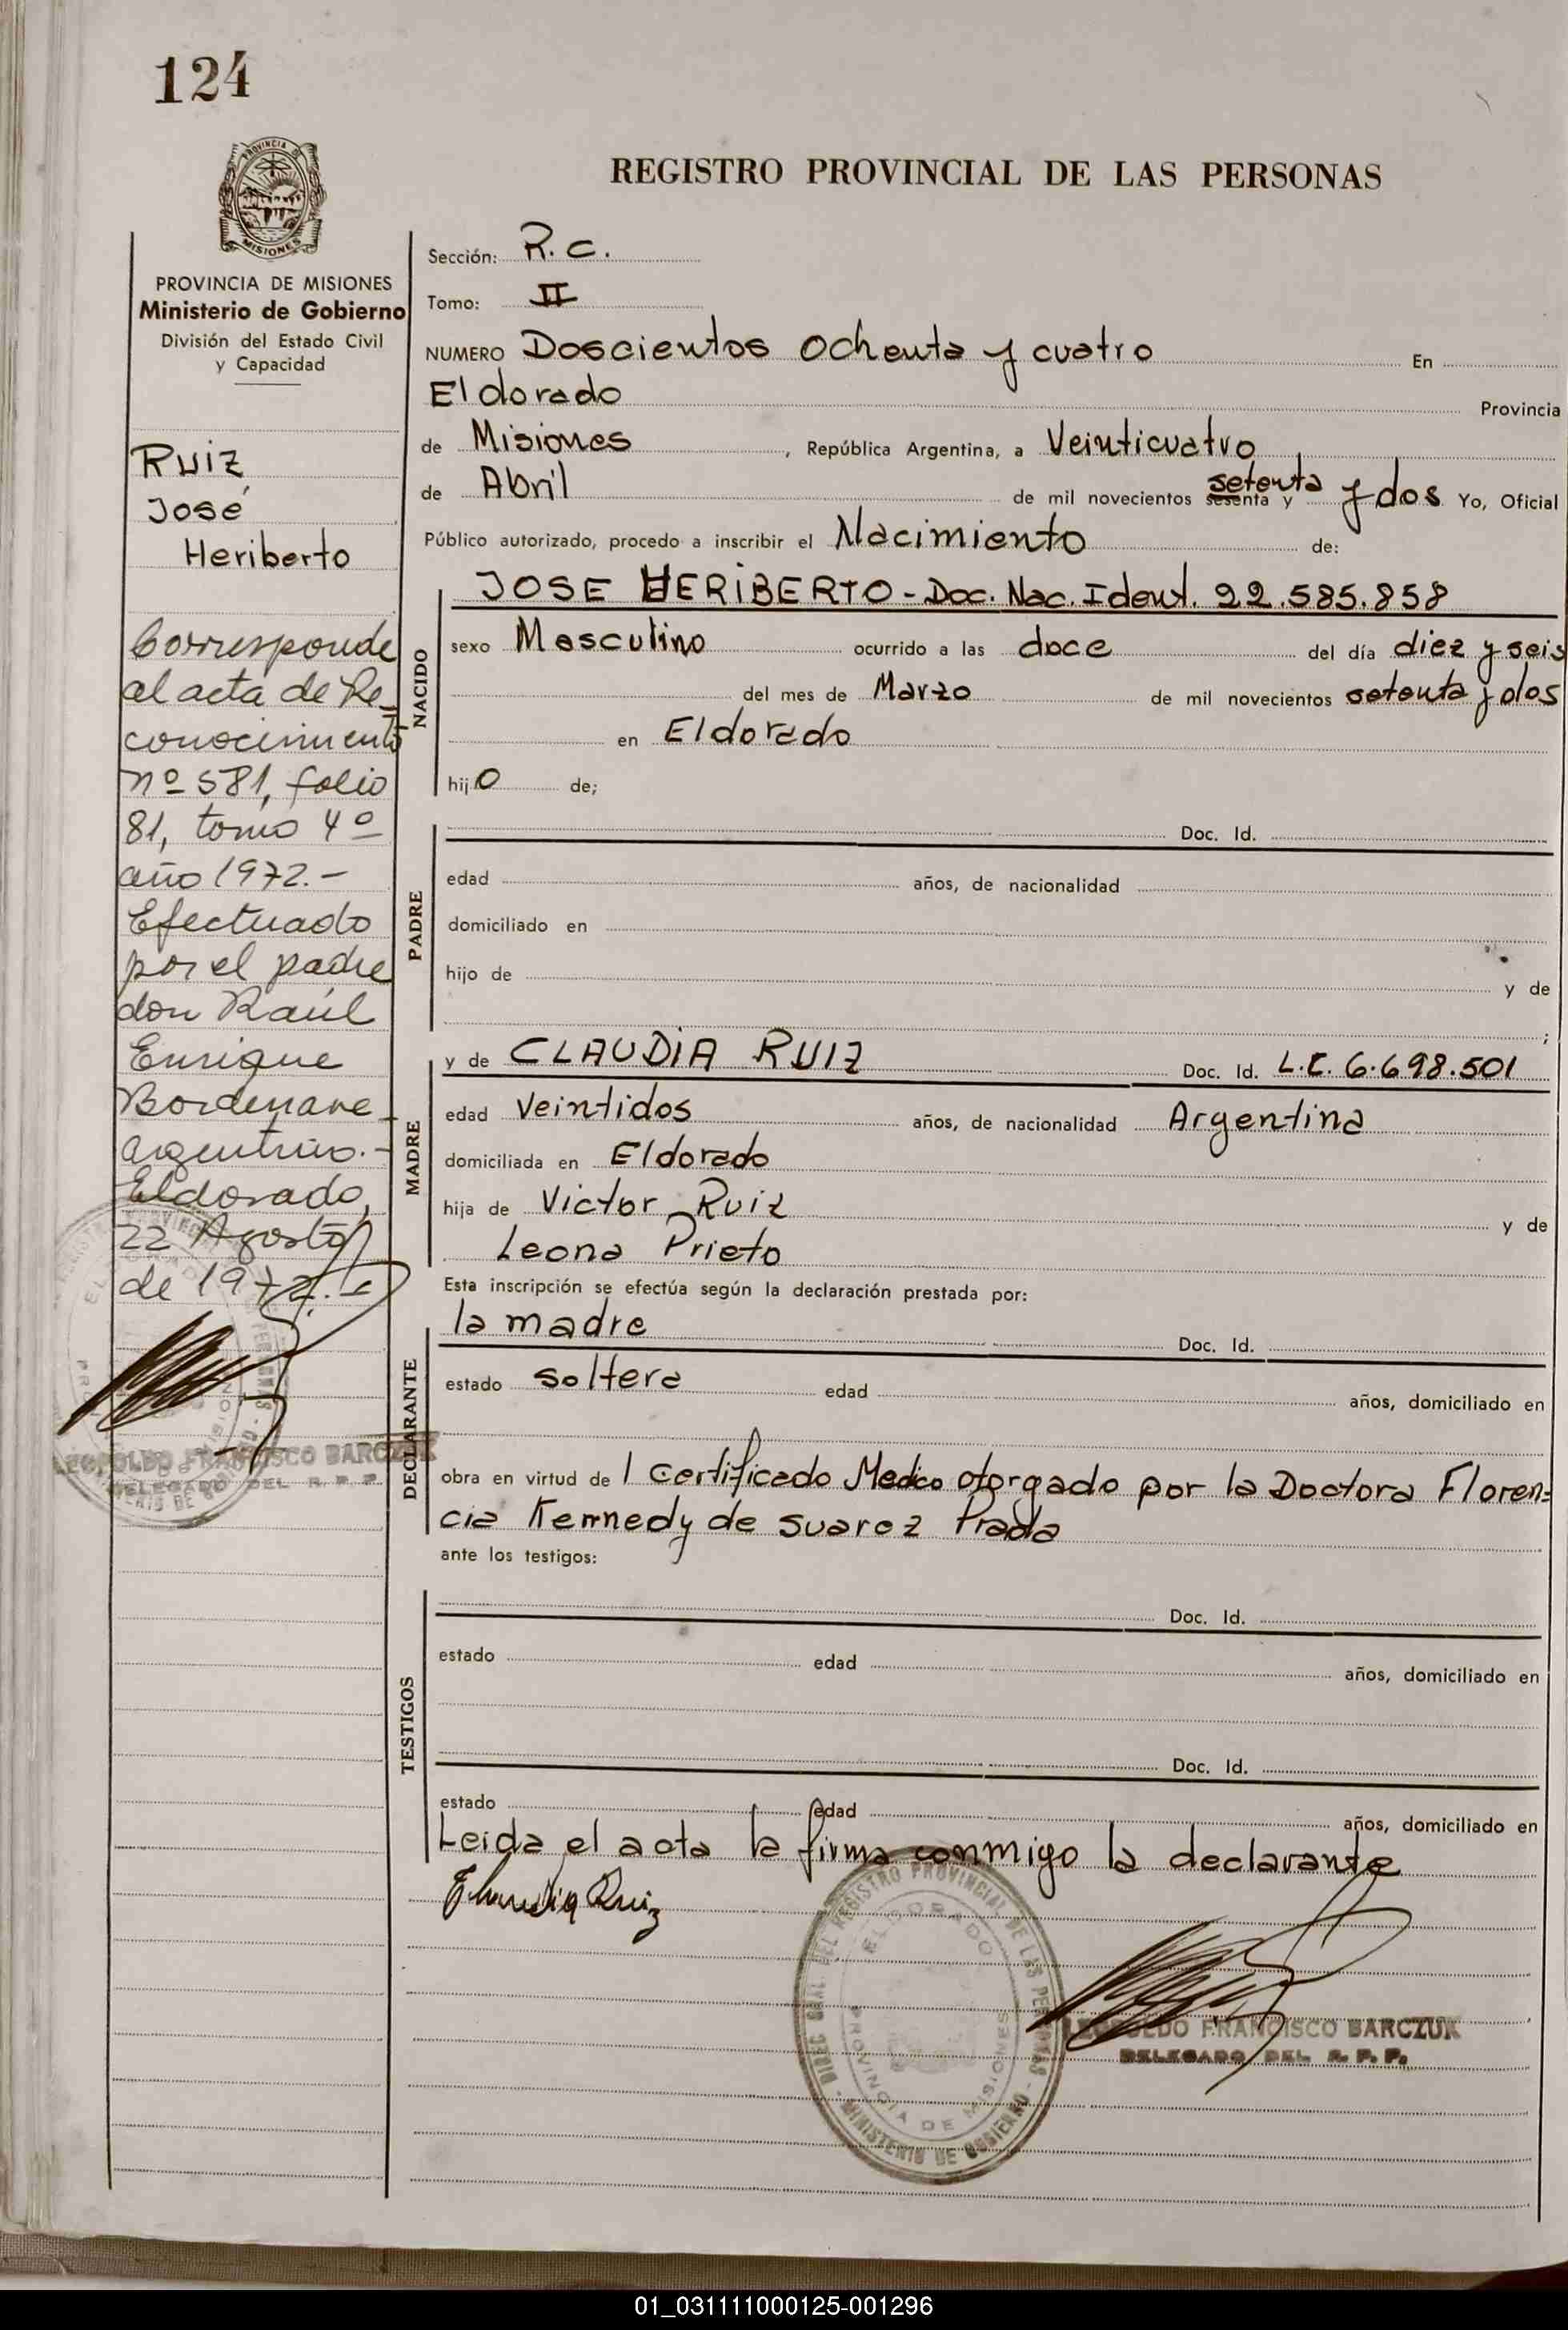 124
PROVINCIA DE
MISIONES
REGISTRO PROVINCIAL DE LAS PERSONAS
PROVINCIA DE MISIONES
Ministerio de Gobierno
División del Estado Civil
y Capacidad
Ruiz
José
Heriberto
Corresponde
al acta de Re_
conocimiento
nº 581, folio
81, tomo 4º
año 1972.-
Efectuado
por el padre
don Raúl
Enrique
Bordenave_
argentino.-
Eldorado,
22 Agosto
de 1972.-
LEOPOLDO FRANCISCO BARCZUK
DELEGADO DEL R. P. P.
Sección: R. C.
Tomo: II
NUMERO Doscientos Ochenta y cuatro En
Eldorado Provincia
de Misiones, República Argentina, a Veinticuatro
de Abril de mil novecientos sesenta y setenta y dos Yo, Oficial
Público autorizado, procedo a inscribir el Nacimiento de:
NACIDO
JOSE HERIBERTO - Doc. Nac. Ident. 22.585.858
sexo Masculino ocurrido a las doce del día diez y seis
del mes de Marzo de mil novecientos setenta y dos
en Eldorado
hijo de;
PADRE
Doc. Id.
edad años, de nacionalidad
domiciliado en
hijo de y de
;
MADRE
y de CLAUDIA RUIZ Doc. Id. L.C. 6.698.501
edad Veintidos años, de nacionalidad Argentina
domiciliada en Eldorado
hija de Victor Ruiz y de
Leona Prieto
Esta inscripción se efectúa según la declaración prestada por:
DECLARANTE
la madre Doc. Id.
estado soltera edad años, domiciliado en
obra en virtud de 1 Certificado Medico otorgado por la Doctora Floren=
cia Kennedy de Suarez Prada
ante los testigos:
TESTIGOS
Doc. Id.
estado edad años, domiciliado en
Doc. Id.
estado edad años, domiciliado en
Leida el acta la firma conmigo la declarante
Claudia Ruiz
DIREC. GRAL. DEL REGISTRO PROVINCIAL DE LAS PERSONAS - MINISTERIO DE GOBIERNO -
ELDORADO
PROVINCIA DE MISIONES
LEOPOLDO FRANCISCO BARCZUK
DELEGADO DEL R. P. P.
01_031111000125-001296